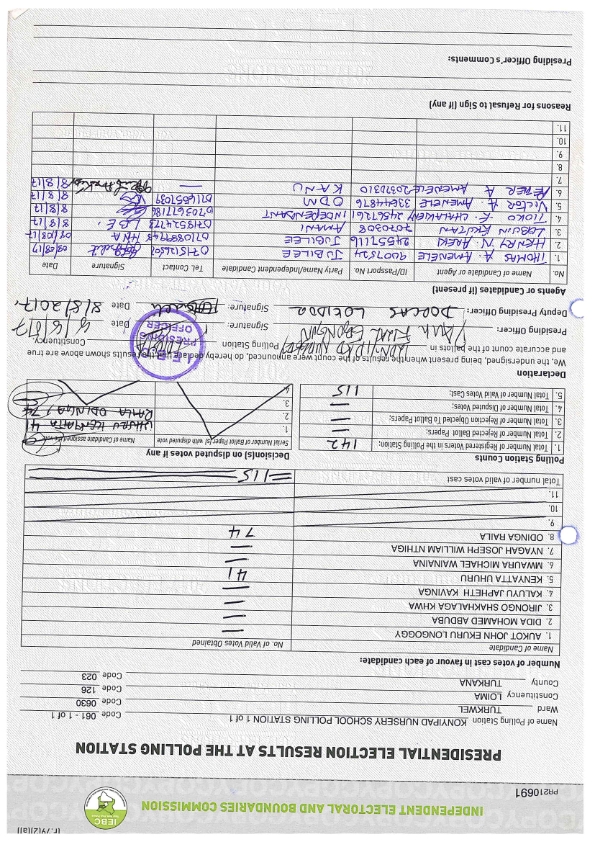 (r.79(2)(a))
INDEPENDENT ELECTORAL AND BOUNDARIES COMMISSION
IEBC
PR210691
PRESIDENTIAL ELECTION RESULTS AT THE POLLING STATION
Name of Polling Station KONYIPAD NURSERY SCHOOL POLLING STATION 1 of 1 Code 061 - 1 of 1
Ward TURKWEL Code 0630
Constituency LOIMA Code 126
County TURKANA Code 023
Number of votes cast in favour of each candidate:
Name of Candidate No. of Valid Votes Obtained
1. AUKOT JOHN EKURU LONGOGGO —
2. DIDA MOHAMED ABDUBA —
3. JIRONGO SHAKHALAGA KHWA —
4. KALUYU JAPHETH KAVINGA —
5. KENYATTA UHURU 41
6. MWAURA MICHAEL WAINAINA —
7. NYAGAH JOSEPH WILLIAM NTHIGA —
8. ODINGA RAILA 74
9.
10.
11.
Total number of valid votes cast =115=
Polling Station Counts
1. Total Number of Registered Voters in the Polling Station; 142
2. Total Number of Rejected Ballot Papers; —
3. Total Number of Rejection Objected To Ballot Papers; —
4. Total Number of Disputed Votes; —
5. Total Number of Valid Votes Cast; 115
Decisions(s) on disputed votes if any
Serial number of Ballot Paper (s) with disputed vote Name of Candidate assigned the vote
1. UHURU KENYATTA 41
2. RAILA ODINGA 74
3.
4.
Declaration
We, the undersigned, being present when the results of the count were announced, do hereby declare that the results shown above are true
and accurate count of the ballots in Polling Station Constituency
Presiding Officer: Signature: Date 8/8/17
Deputy Presiding Officer: DORCAS Signature: Date 8/8/2017
PRESIDING OFFICER
Agents or Candidates (if present)
No. Name of Candidate or Agent ID/Passport No. Party Name/Independent Candidate Tel. Contact Signature Date
1. THOMAS A. AMENELE JUBILEE 08/08/17
2. HENRY N. 24557116 JUBILEE 09/08/17
3. 20703508 AMANI 8/8/17
4. TIOKO E. INDEPENDANT 8/8/17
5. VICTOR A. AMENELE 33644876 ODM 8/8/17
6. PETER A. AMENELE 20572310 KANU — 8/8/17
7.
8.
9.
10.
11.
Reasons for Refusal to Sign (if any)
Presiding Officer's Comments: